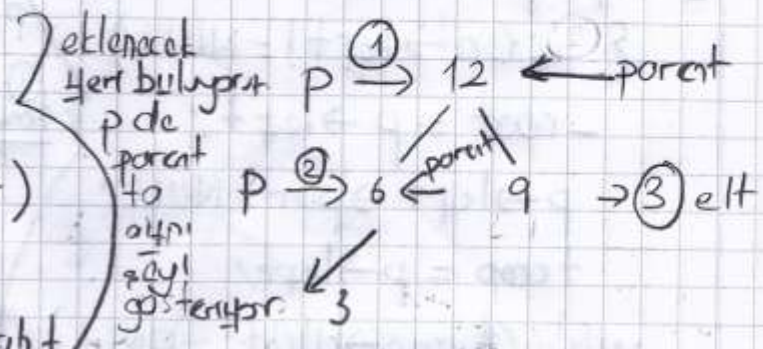 eklenecek
yeri buluyor.
p de
parent
to
aynı
şeyi
gösteriyor.
p ① → 12 ← parent
parent
p ② → 6 ← 9 → ③ elt
3